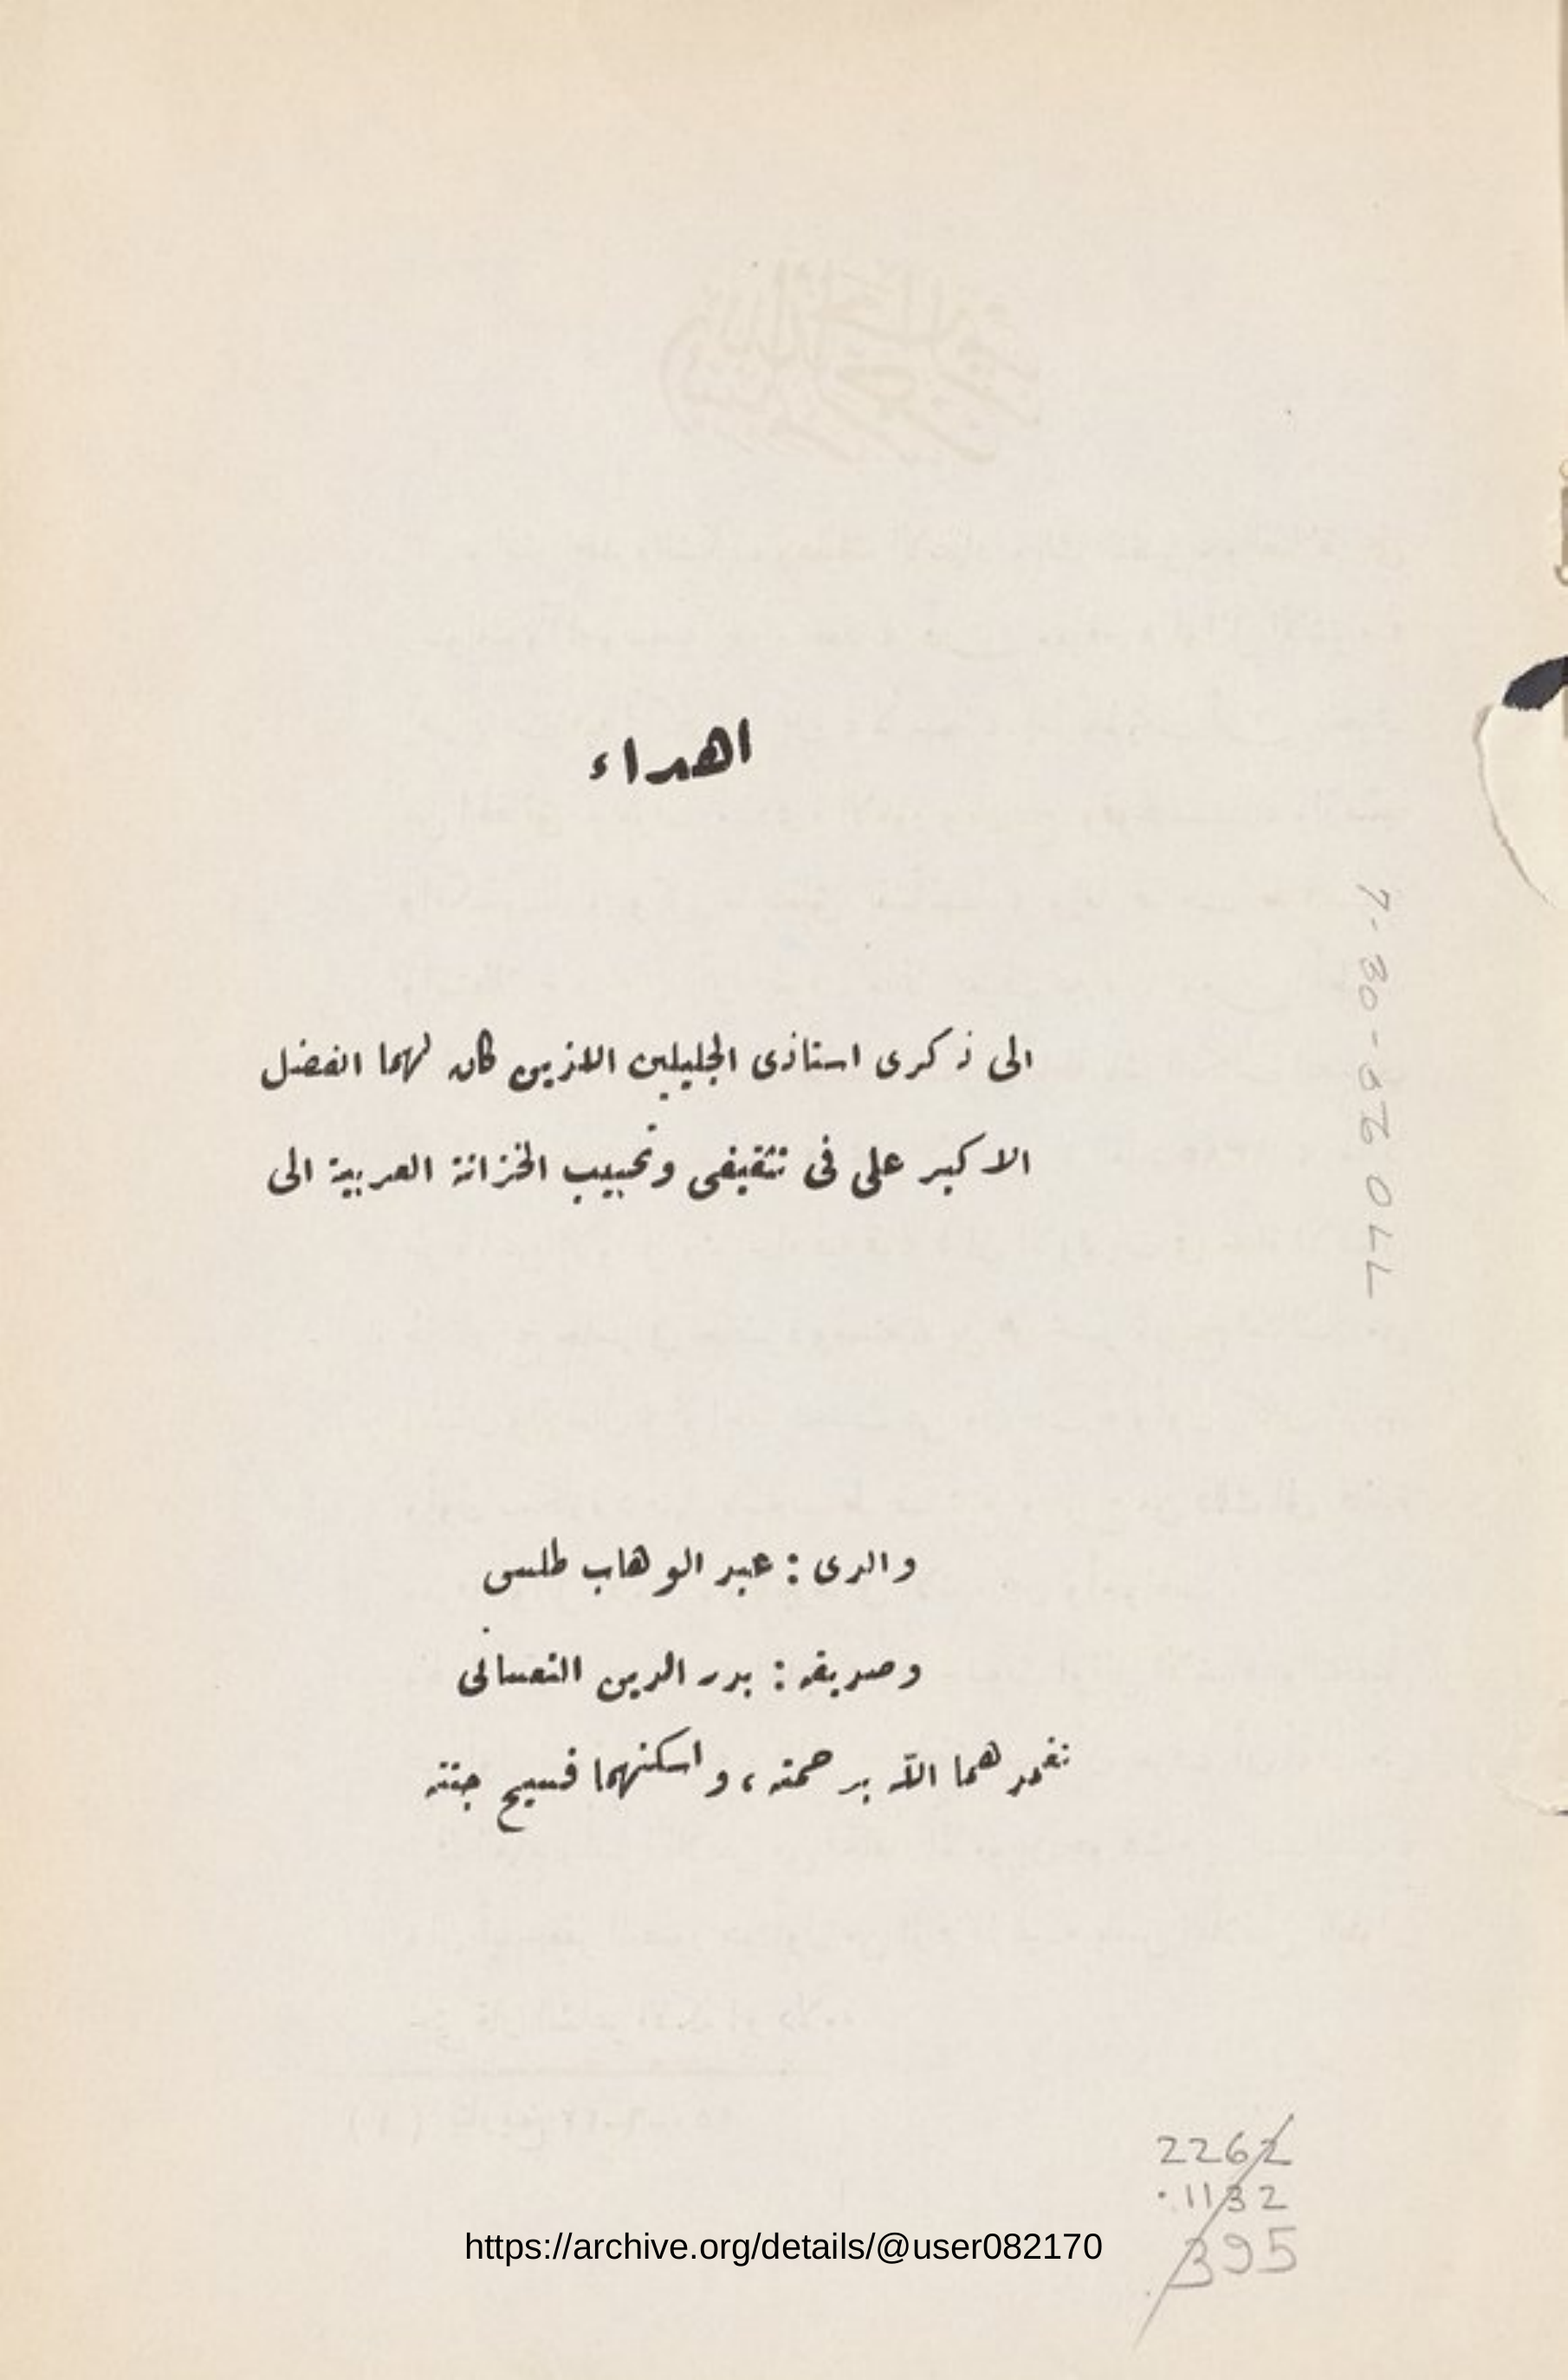 اهداء
الى ذكرى استاذى الجليلين اللذين كان لهما الفضل
الاكبر على فى تثقيفى وتحبيب الخزانة العربية الى
والدى : عبد الوهاب طلس
وصديقه : بدر الدين النعسانى
تغمدهما الله برحمته ، واسكنهما فسيح جنته
2262
.1132
.395
https://archive.org/details/@user082170